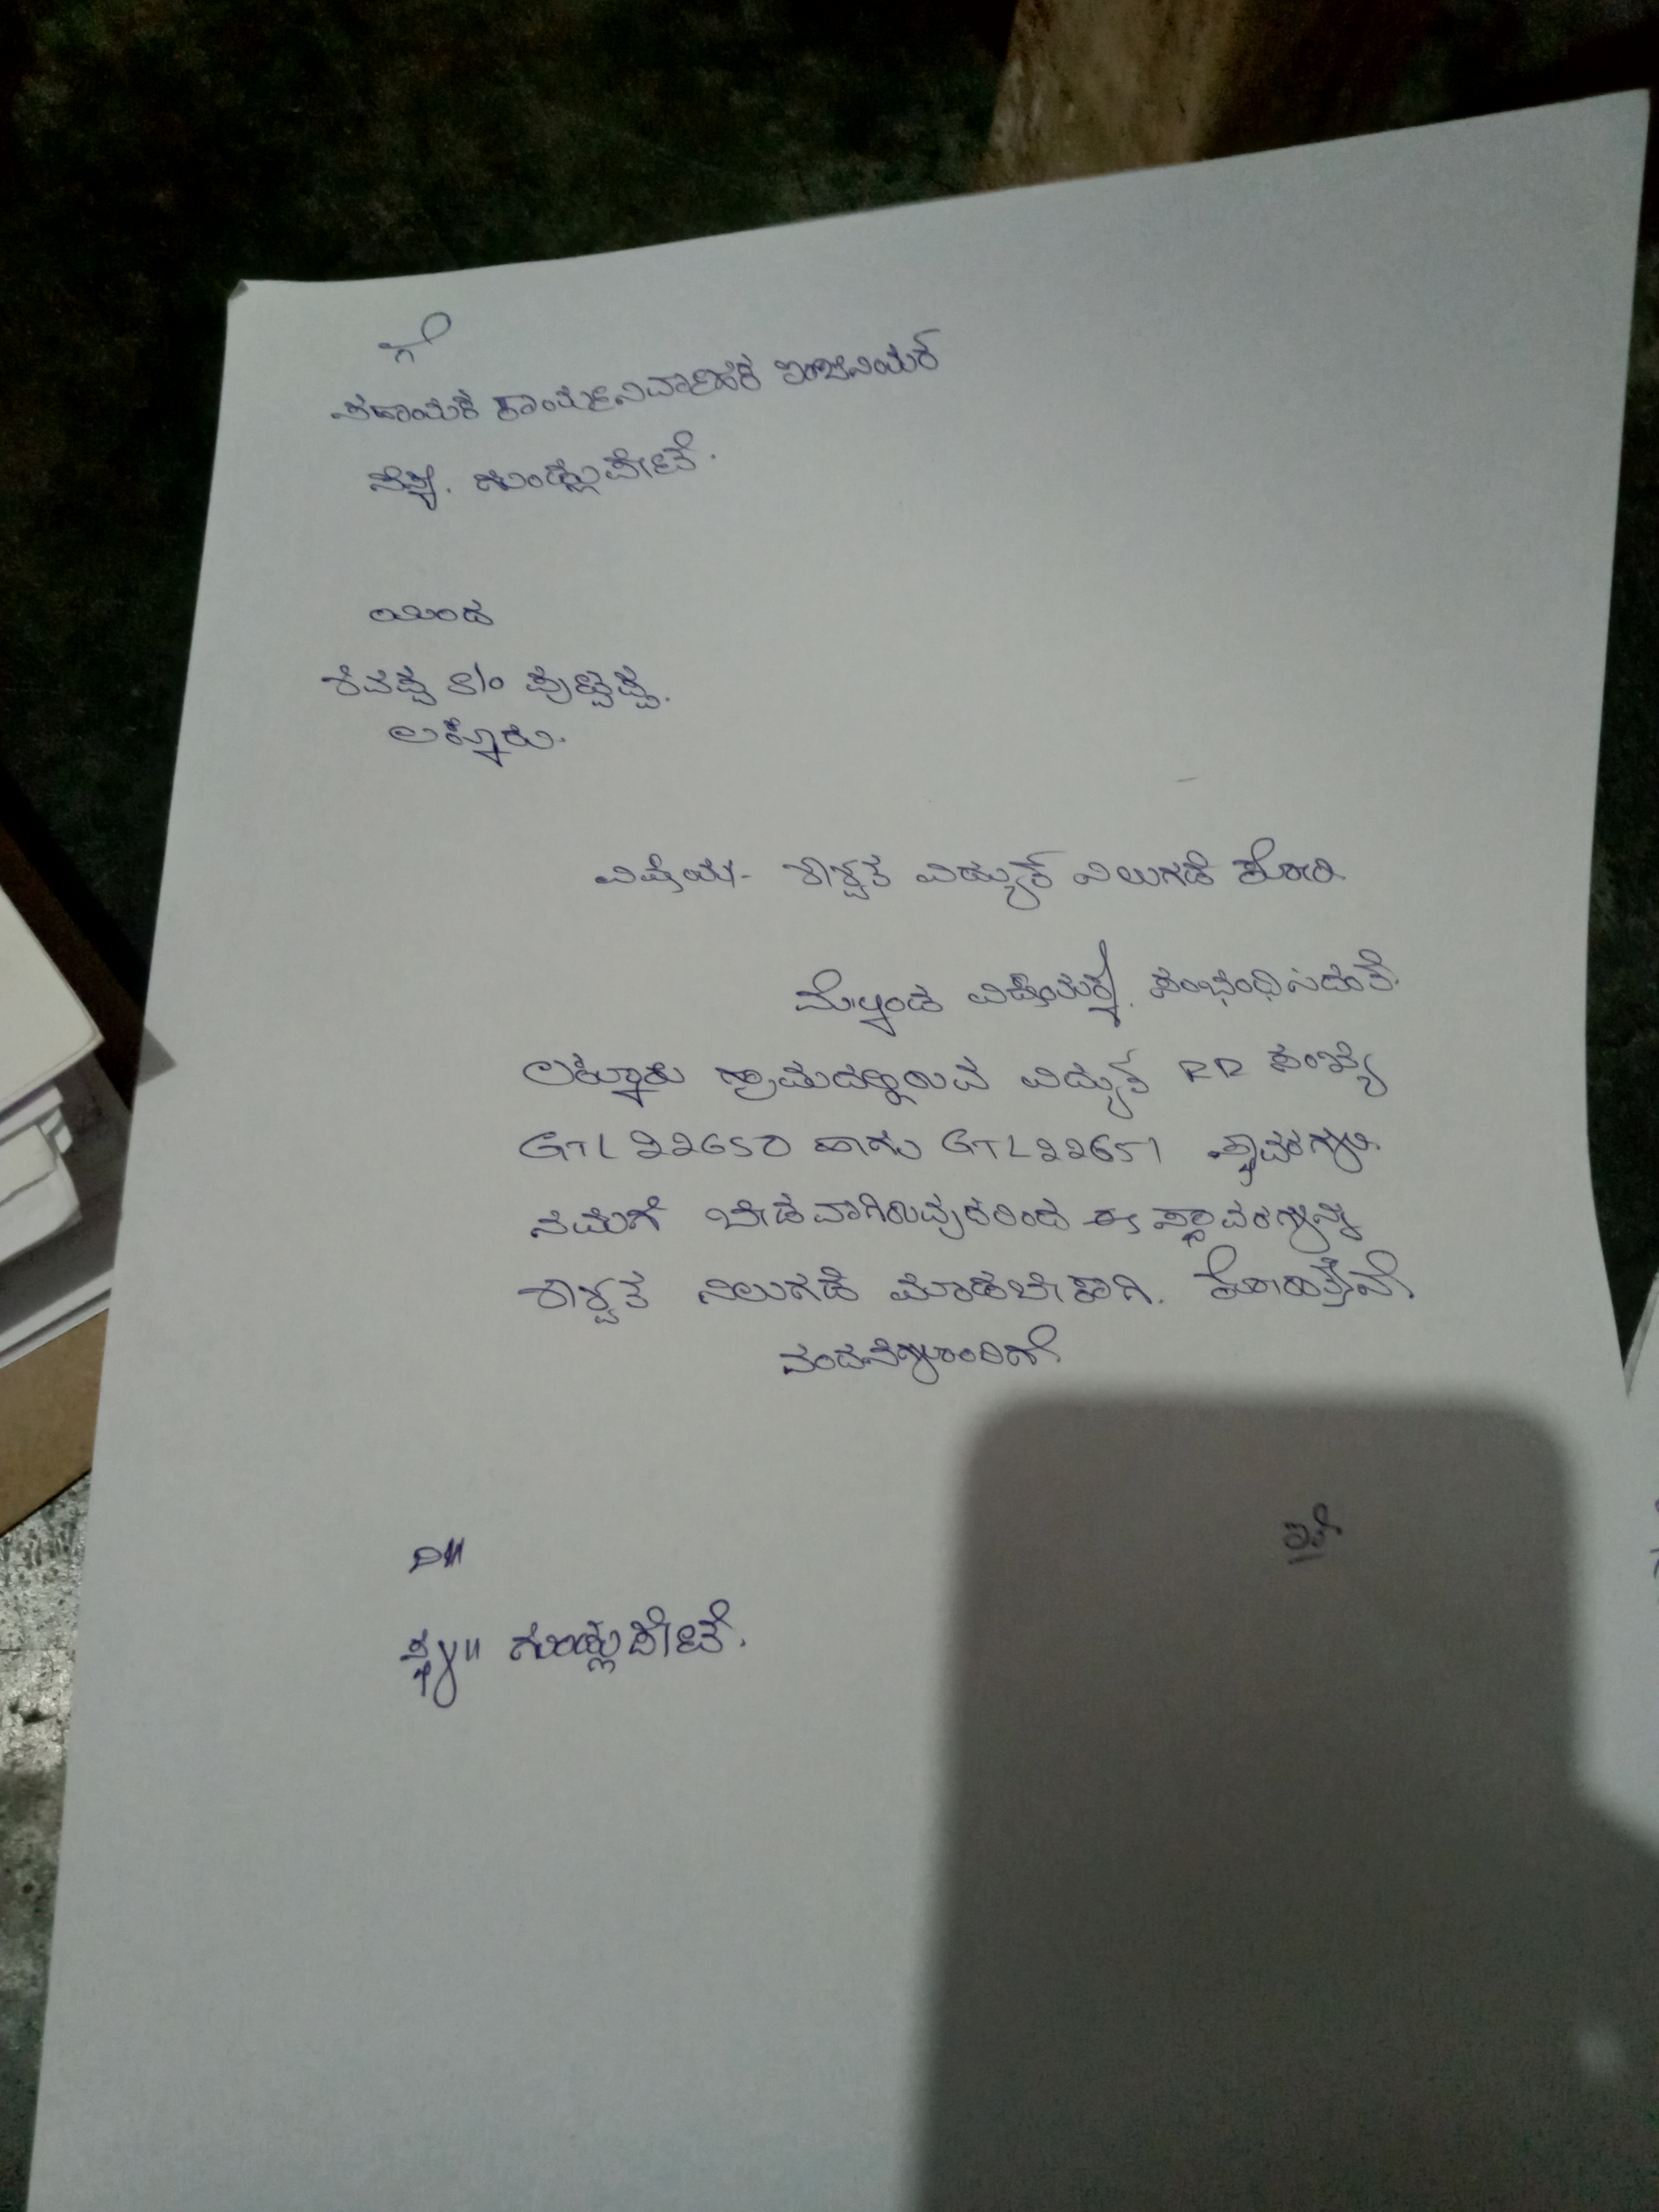 ಗೆ
ಸಹಾಯಕ ಕಾರ್ಯನಿರ್ವಾಹಕ ಇಂಜಿನಿಯರ್
ಸೆಸ್ಕ. ಗುಂಡ್ಲುಪೇಟೆ.
ಯಿಂದ
ಶಿವಪ್ಪ S/o ಪುಟ್ಟಪ್ಪ.
ಲಕ್ಕೂರು.
ವಿಷಯ- ಶಾಶ್ವತ ವಿದ್ಯುತ್ ನಿಲುಗಡೆ ಕೋರಿ
ಮೇಲ್ಕಂಡ ವಿಷಯಕ್ಕೆ ಸಂಭಂಧಿಸಿದಂತೆ.
ಲಕ್ಕೂರು ಗ್ರಾಮದಲ್ಲಿರುವ ವಿದ್ಯುತ್ RR ಸಂಖ್ಯೆ
GTL 22650 ಹಾಗು GTL 22651 ಸ್ಥಾವರಗಳು
ನಮಗೆ ಬೇಡವಾಗಿರುವುದರಿಂದ ಈ ಸ್ಥಾವರಗಳನ್ನು
ಶಾಶ್ವತ ನಿಲುಗಡೆ ಮಾಡಬೇಕಾಗಿ. ಕೋರುತ್ತೇವೆ.
ವಂದನೆಗಳೊಂದಿಗೆ
ದಿ॥
ಸ್ಥಳ॥ ಗುಂಡ್ಲುಪೇಟೆ.